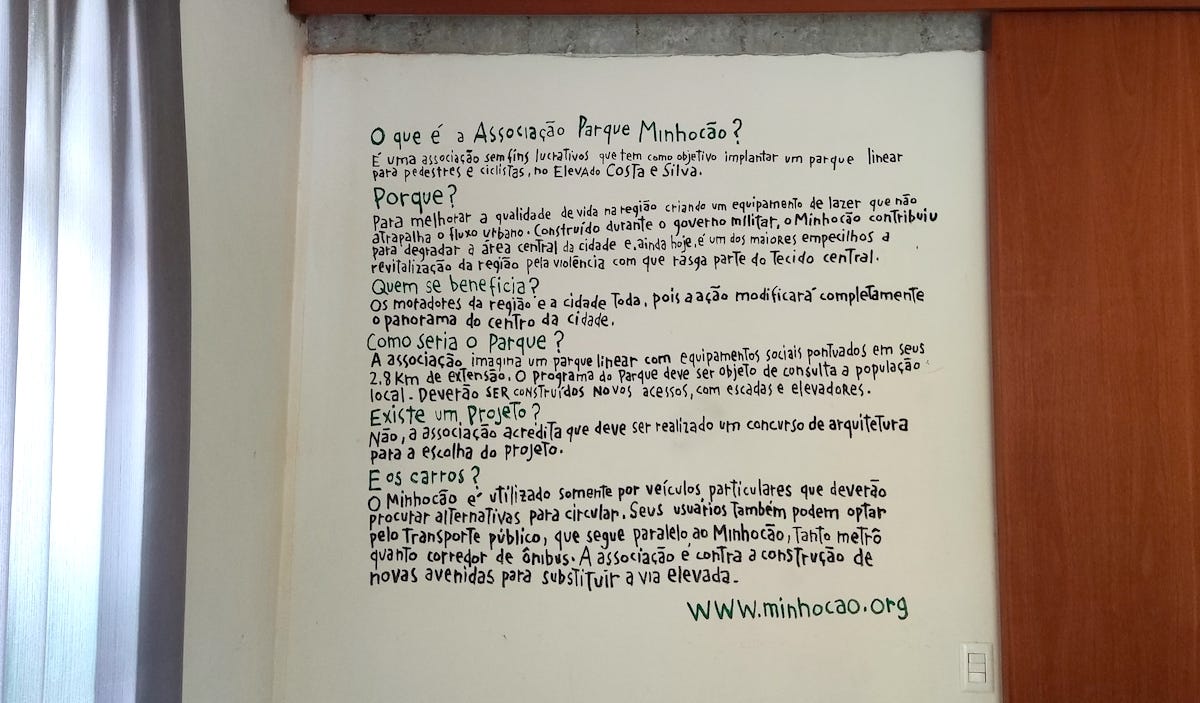 O que é a Associação Parque Minhocão?
É uma associação sem fins lucrativos que tem como objetivo implantar um parque linear
para pedestres e ciclistas, no Elevado Costa e Silva.
Porque?
Para melhorar a qualidade de vida na região criando um equipamento de lazer que não
atrapalha o fluxo urbano. Construído durante o governo militar, o Minhocão contribuiu
para degradar a área central da cidade e, ainda hoje, é um dos maiores empecilhos a
revitalização da região pela violência com que rasga parte do Tecido central.
Quem se beneficia?
Os moradores da região e a cidade Toda, pois a ação modificará completamente
o panorama do centro da cidade.
Como seria o Parque?
A associação imagina um parque linear com equipamentos sociais pontuados em seus
2,8 Km de extensão. O programa do Parque deve ser objeto de consulta a população
local. Deverão SER construídos Novos acessos, com escadas e elevadores.
Existe um Projeto?
Não, a associação acredita que deve ser realizado um concurso de arquitetura
para a escolha do projeto.
E os carros?
O Minhocão é utilizado somente por veículos particulares que deverão
procurar alternativas para circular. Seus usuários também podem optar
pelo transporte público, que segue paralelo ao Minhocão, Tanto metrô
quanto corredor de ônibus. A associação é contra a construção de
novas avenidas para substituir a via elevada.
www.minhocao.org